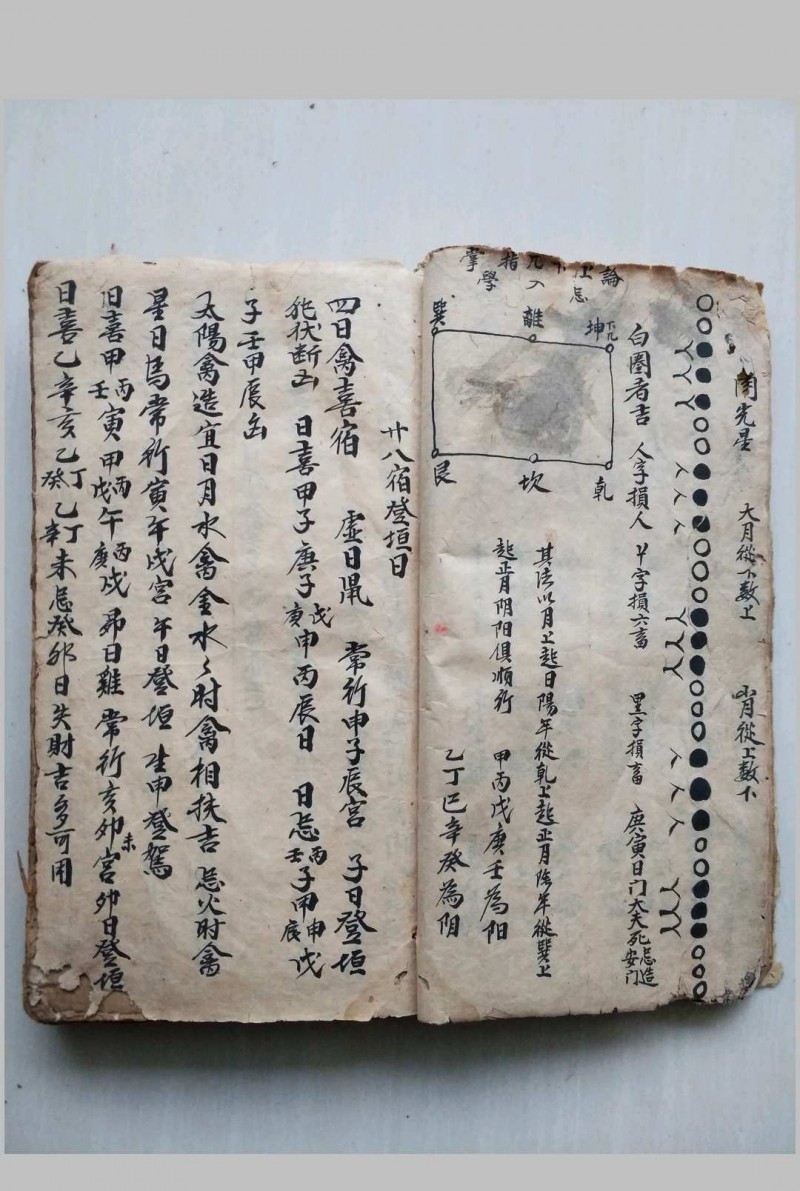 大月從下数上
小月從上数下
白圈者吉
人字損人
丫字損六畜
黑字損畜
庚寅日门大夫死忌造安门
論上忌
指
掌學
巽
離
坤
艮
坎
乾
其法以月上起日陽年從乾上起正月陰年從巽上
起正月阴阳俱順行
甲丙戊庚壬為阳
乙丁巳辛癸為阴
廿八宿登垣日
四日禽喜宿
虛日鼠
常行申子辰宮
子日登垣
日喜甲子庚子戊庚申丙辰日
日忌丙壬子甲申甲辰戊
子壬甲辰凶
太陽禽造宜日月水禽金水〻时禽相扶吉
忌火时禽
星日馬常行寅午戌宮午日登垣
生申登駕
日喜甲丙壬寅甲丙戊午丙庚戌
昴日雞
常行亥卯未宮卯日登垣
日喜乙辛亥乙丁癸乙丁辛未忌癸卯日失財吉多可用